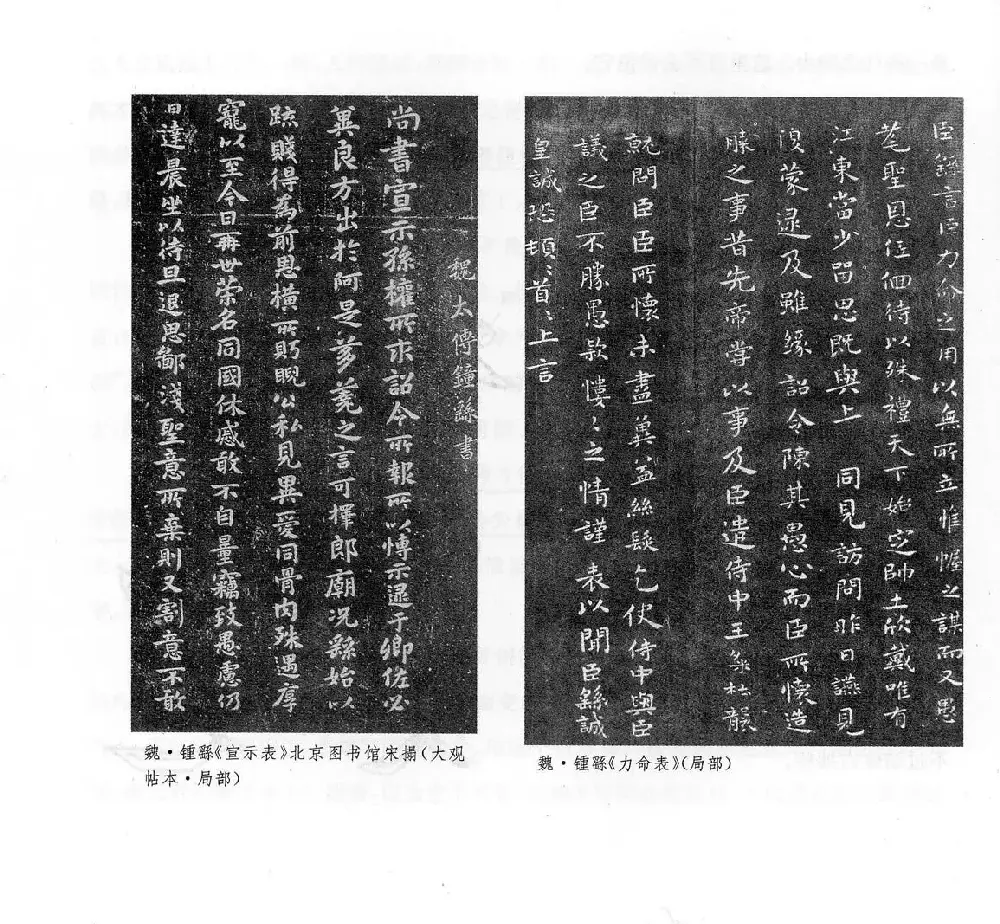 魏太傅鍾繇書
尚書宣示孫權所求詔令所報所以博示逮于卿佐必
冀良方出於阿是芻蕘之言可擇郎廟况繇始以
疏賤得為前恩横所眄睨公私見異愛同骨肉殊遇厚
寵以至今日再世荣名同國休慼敢不自量竊致愚慮仍
日達晨坐以待旦退思鄙淺聖意所棄則又割意不敢
魏·锺繇《宣示表》北京图书馆宋搨(大观
帖本·局部)
臣繇言臣力命之用以無所立惟幄之謀而又愚
耄聖恩低佪待以殊禮天下始定帥土欣戴唯有
江東當少留思既與上 同見訪問昨日讌見
復蒙逮及雖緣詔令陳其愚心而臣所懷造
膝之事昔先帝嘗以事及臣遣侍中王粲杜襲
就問臣臣所懷未盡冀益絲髮乞使侍中與臣
議之臣不勝愚款慺〻之情謹 表以聞臣繇誠
皇誠恐頓〻首〻上言
魏·锺繇《力命表》(局部)